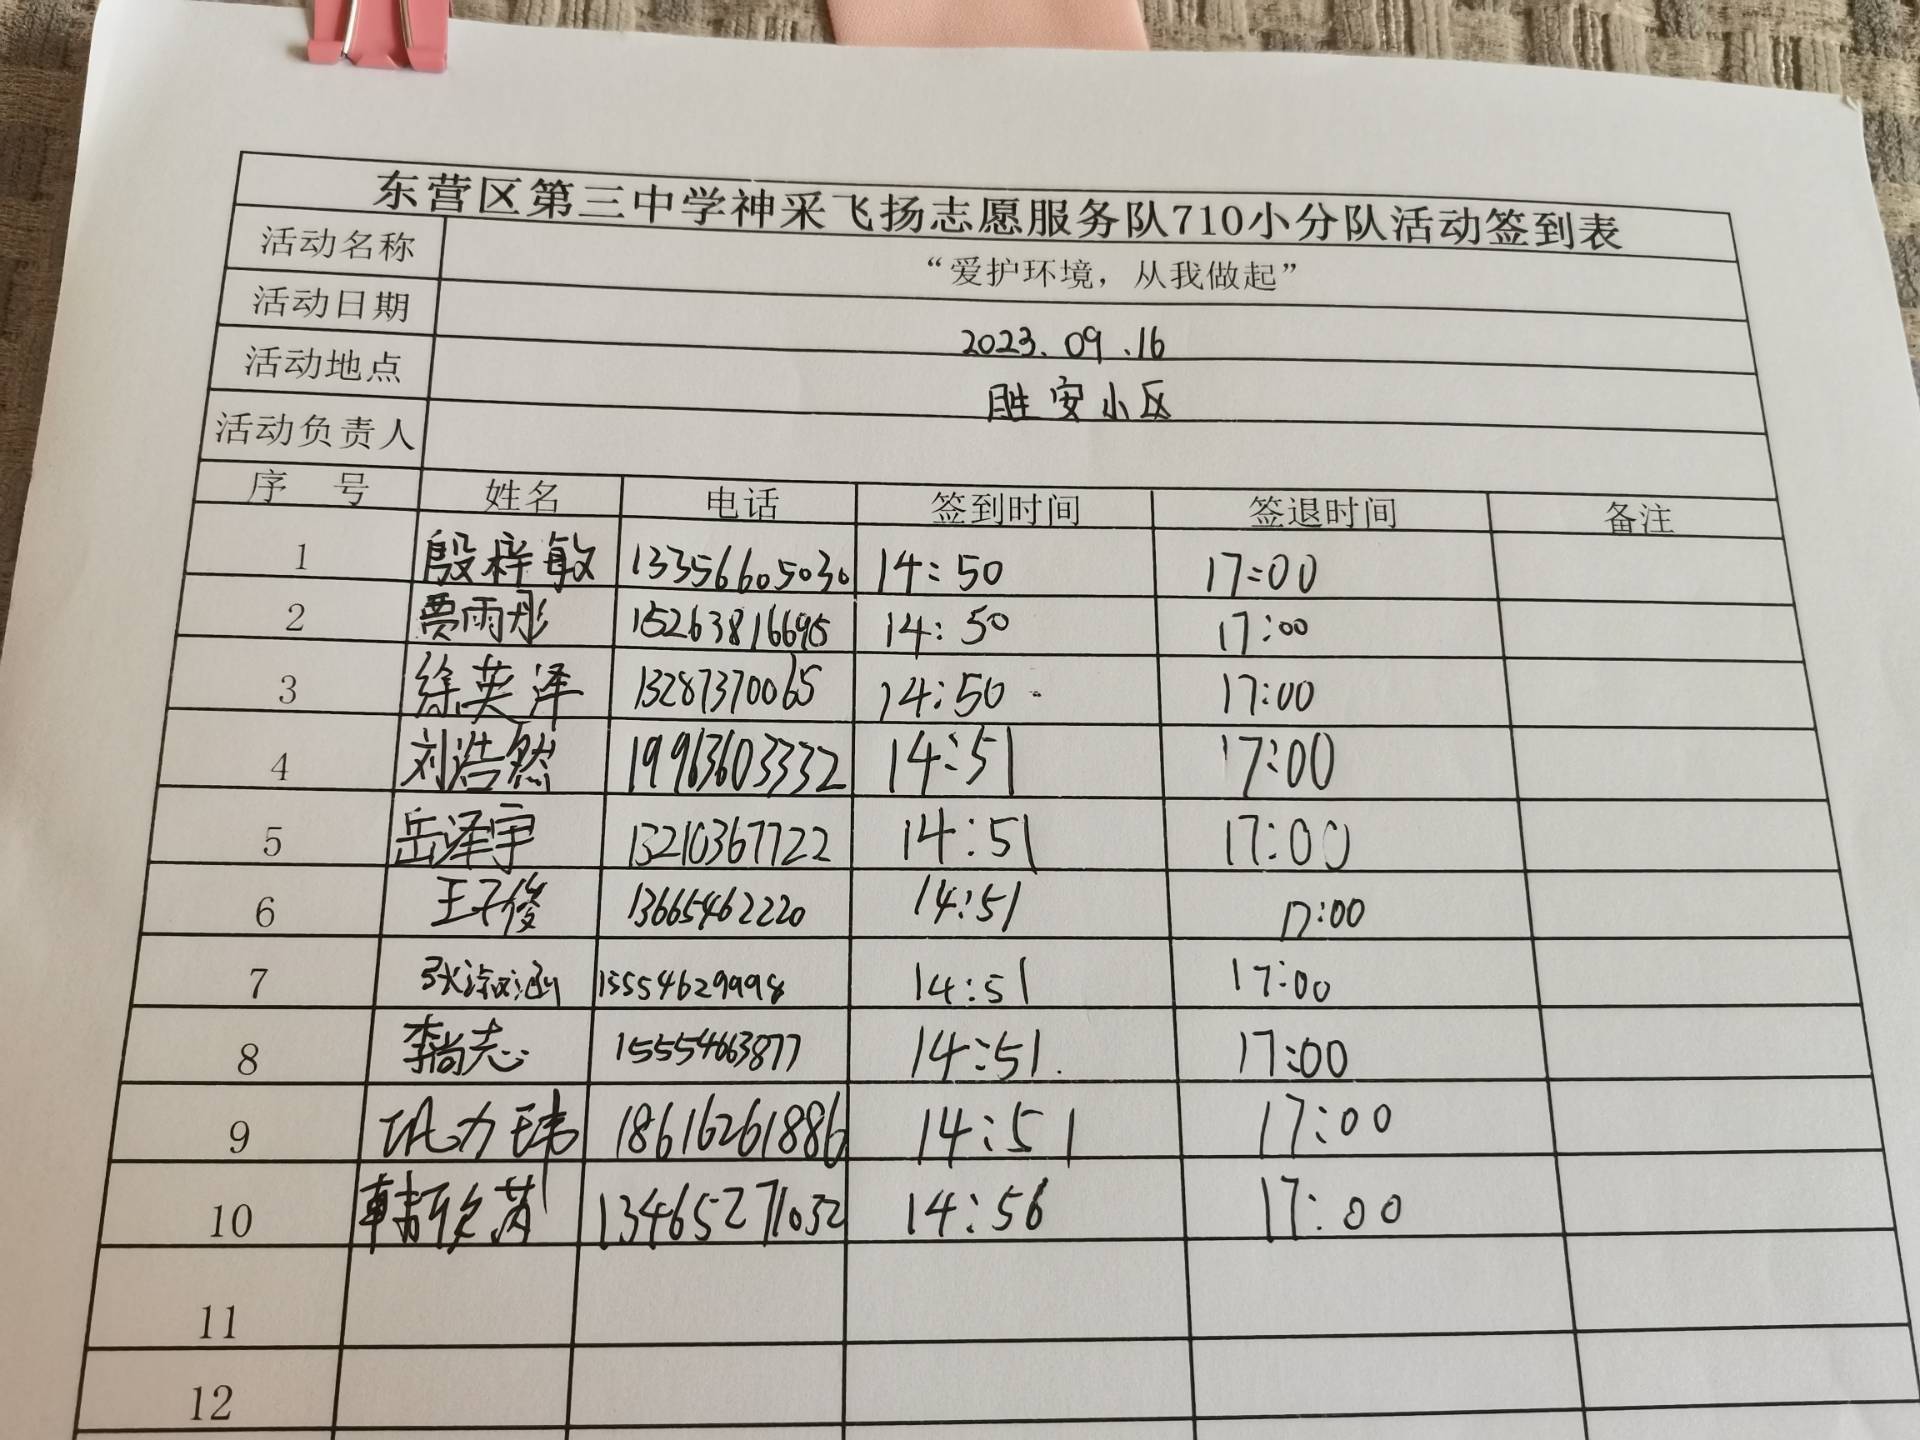 东营区第三中学神采飞扬志愿服务队710小分队活动签到表
活动名称 “爱护环境，从我做起”
活动日期 2023.09.16
活动地点 胜安小区
活动负责人
序 号 姓名 电话 签到时间 签退时间 备注
1 殷梓敏 13356605030 14:50 17:00
2 贾雨彤 15263816695 14:50 17:00
3 徐英泽 13287370065 14:50 17:00
4 刘浩然 19963603332 14:51 17:00
5 岳泽宇 13210367722 14:51 17:00
6 王子俊 13665462220 14:51 17:00
7 张淑涵 15554629998 14:51 17:00
8 李尚志 15554663877 14:51. 17:00
9 巩力玮 18616261886 14:51 17:00
10 韩欣芮 13465271032 14:56 17:00
11
12